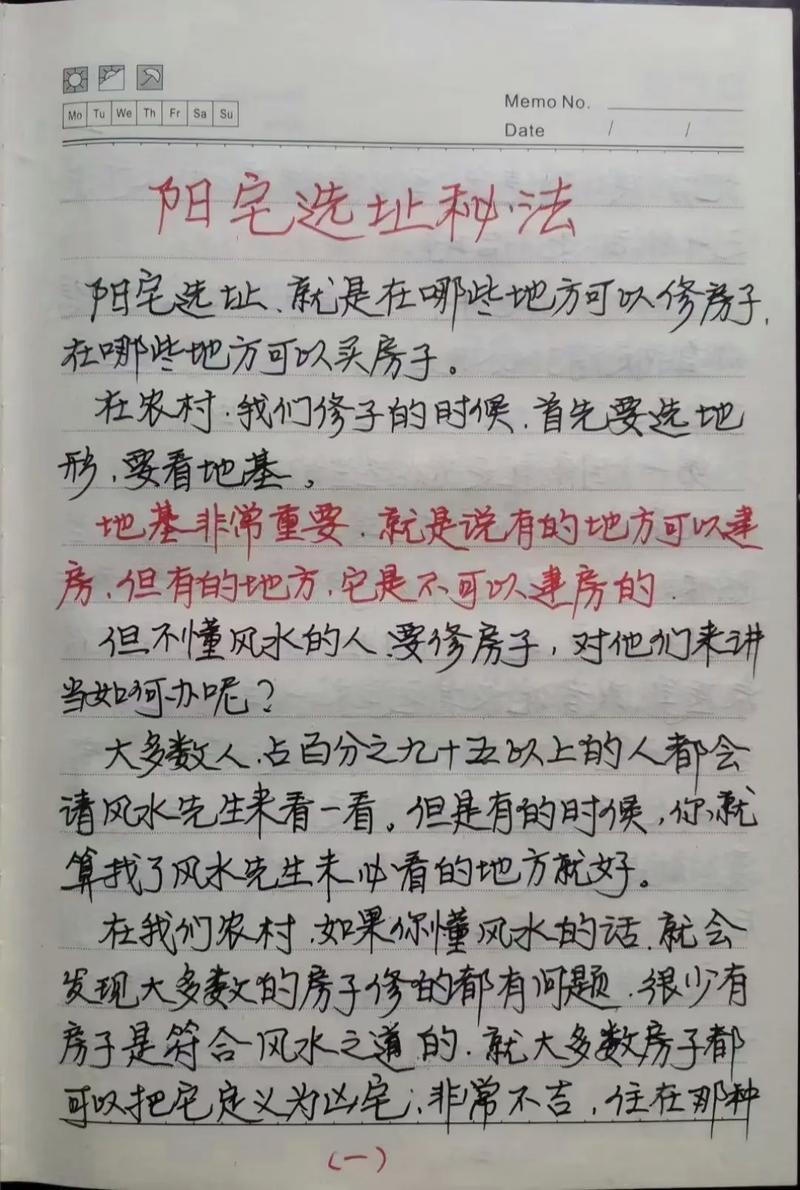 Mo Tu We Th Fr Sa Su
Memo No.
Date / /
阳宅选址秘法
阳宅选址、就是在哪些地方可以修房子,
在哪些地方可以买房子。
在农村,我们修子的时候,首先要选地
形,要看地基。
地基非常重要,就是说有的地方可以建
房,但有的地方,它是不可以建房的.
但不懂风水的人,要修房子,对他们来讲
当如何办呢?
大多数人,占百分之九十五以上的人都会
请风水先生来看一看。但是有的时候,你就
算找了风水先生未必看的地方就好。
在我们农村,如果你懂风水的话,就会
发现大多数的房子修的都有问题,很少有
房子是符合风水之道的,就大多数房子都
可以把宅定义为凶宅;非常不吉,住在那种
(一)